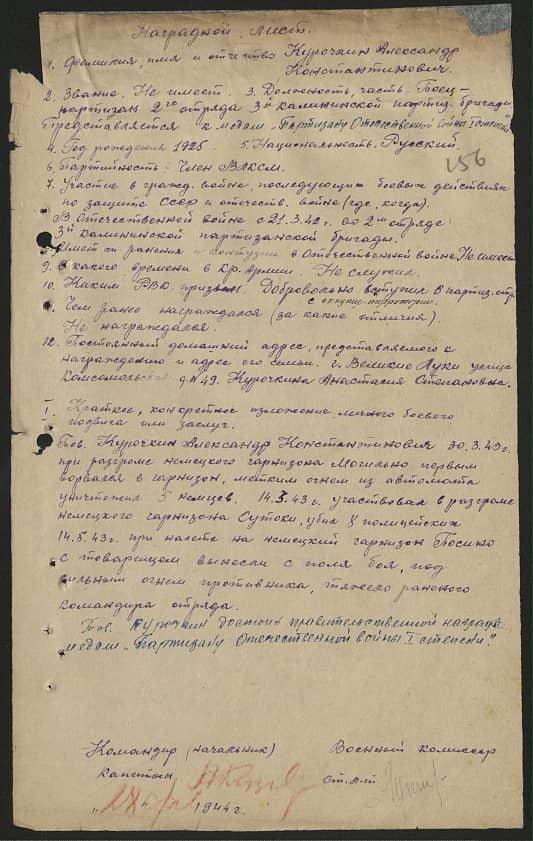 Наградной лист.
1. Фамилия, имя и отчество Курочкин Александр
Константинович.
2. Звание. Не имеет. 3. Должность, часть. Боец-
партизан 2го отряда 3й калининской партиз. бригады
Представляется к медали „Партизану Отечественной войны I степени"
4. Год рождения 1925 5. Национальность. Русский.
156
6. Партийность - Член ВЛКСМ.
7. Участие в гражд. войне, последующих боевых действиях
по защите СССР и отечеств. войне (где, когда).
В Отечественной войне с 21.3.42 г. во 2м отряде
3й калининской партизанской бригады.
8. Имеет ли ранения и контузии в Отечественной войне. Не имеет
9. С какого времени в Кр. Армии. Не служил.
10. Каким РВК призван. Добровольно вступил в партиз. отр.
с оккупир. территории.
11. Чем ранее награждался (за какие отличия).
Не награждался.
12. Постоянный домашний адрес, представляемого к
награждению и адрес его семьи. г. Великие Луки улица
Комсомольская д. № 49. Курочкина Анастасия Степановна.
I. Краткое, конкретное изложение личного боевого
подвига или заслуг.
Тов. Курочкин Александр Константинович 30.3.43 г.
при разгроме немецкого гарнизона Могильно первым
ворвался в гарнизон, метким огнем из автомата
уничтожил 5 немцев. 14.5.43 г. участвовал в разгроме
немецкого гарнизона Сутоки, убил 8 полицейских
14.5.43 г. при налете на немецкий гарнизон Посино
с товарищем вынесли с поля боя, под
сильным огнем противника, тяжело раненого
командира отряда.
Тов. Курочкин достоин правительственной награды
медали „Партизану Отечественной войны I степени."
Командир (начальник) Военный комиссар
капитан, ст. л-т
1944 г.